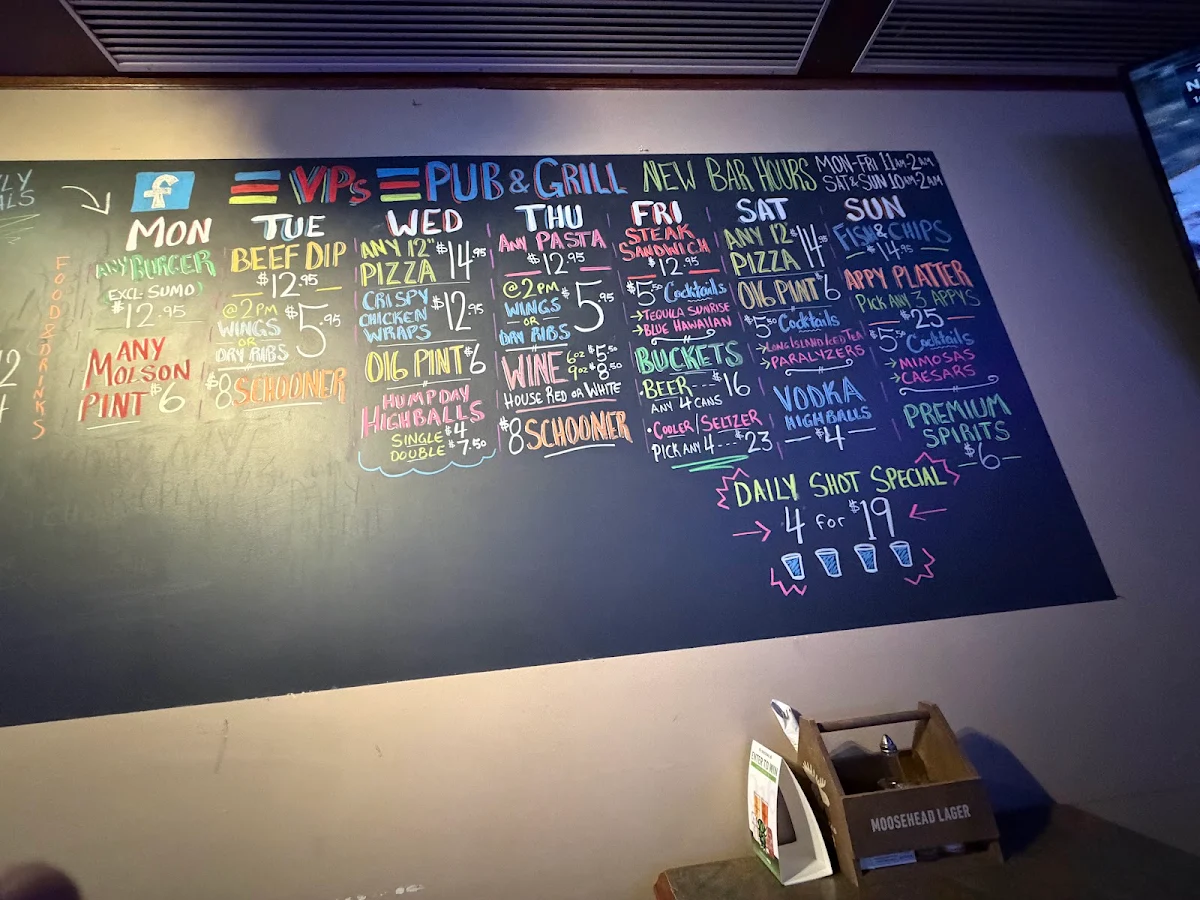 f
VPs PUB & GRILL
NEW BAR HOURS
MON-FRI 11AM-2AM
SAT & SUN 10AM-2AM
FOOD & DRINKS
MON
ANY BURGER
(EXCL. SUMO)
$12.95
ANY
MOLSON
PINT $6
TUE
BEEF DIP
$12.95
@2PM
WINGS
OR
DRY RIBS
$5.95
$8 SCHOONER
WED
ANY 12"
PIZZA $14.95
CRISPY
CHICKEN
WRAPS
$12.95
OV6 PINT $6
HUMP DAY
HIGHBALLS
SINGLE $4
DOUBLE $7.50
THU
ANY PASTA
$12.95
@2PM
WINGS
OR
DRY RIBS
$5.95
WINE 6oz $5.50
9oz $8.50
HOUSE RED OR WHITE
$8 SCHOONER
FRI
STEAK
SANDWICH
$12.95
$5.50 Cocktails
→TEQUILA SUNRISE
→BLUE HAWAIIAN
BUCKETS
•BEER---- $16
ANY 4 CANS
•COOLER/SELTZER
PICK ANY 4---- $23
SAT
ANY 12"
PIZZA $14.95
OV6 PINT $6
$5.50 Cocktails
→LONG ISLAND ICED TEA
→PARALYZERS
VODKA
HIGHBALLS
$4
SUN
FISH & CHIPS
$14.95
APPY PLATTER
PICK ANY 3 APPYS
$25
$5.50 Cocktails
→MIMOSAS
→CAESARS
PREMIUM
SPIRITS
$6
DAILY SHOT SPECIAL
→ 4 for $19 ←
ENTER TO WIN
MOOSEHEAD LAGER